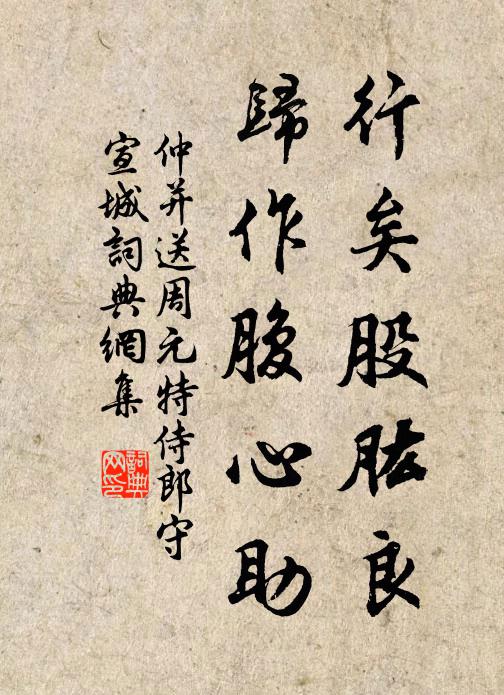 行矣股肱良
歸作腹心助
仲并送周元特侍郎守
宣城詞典網集
詞典网印